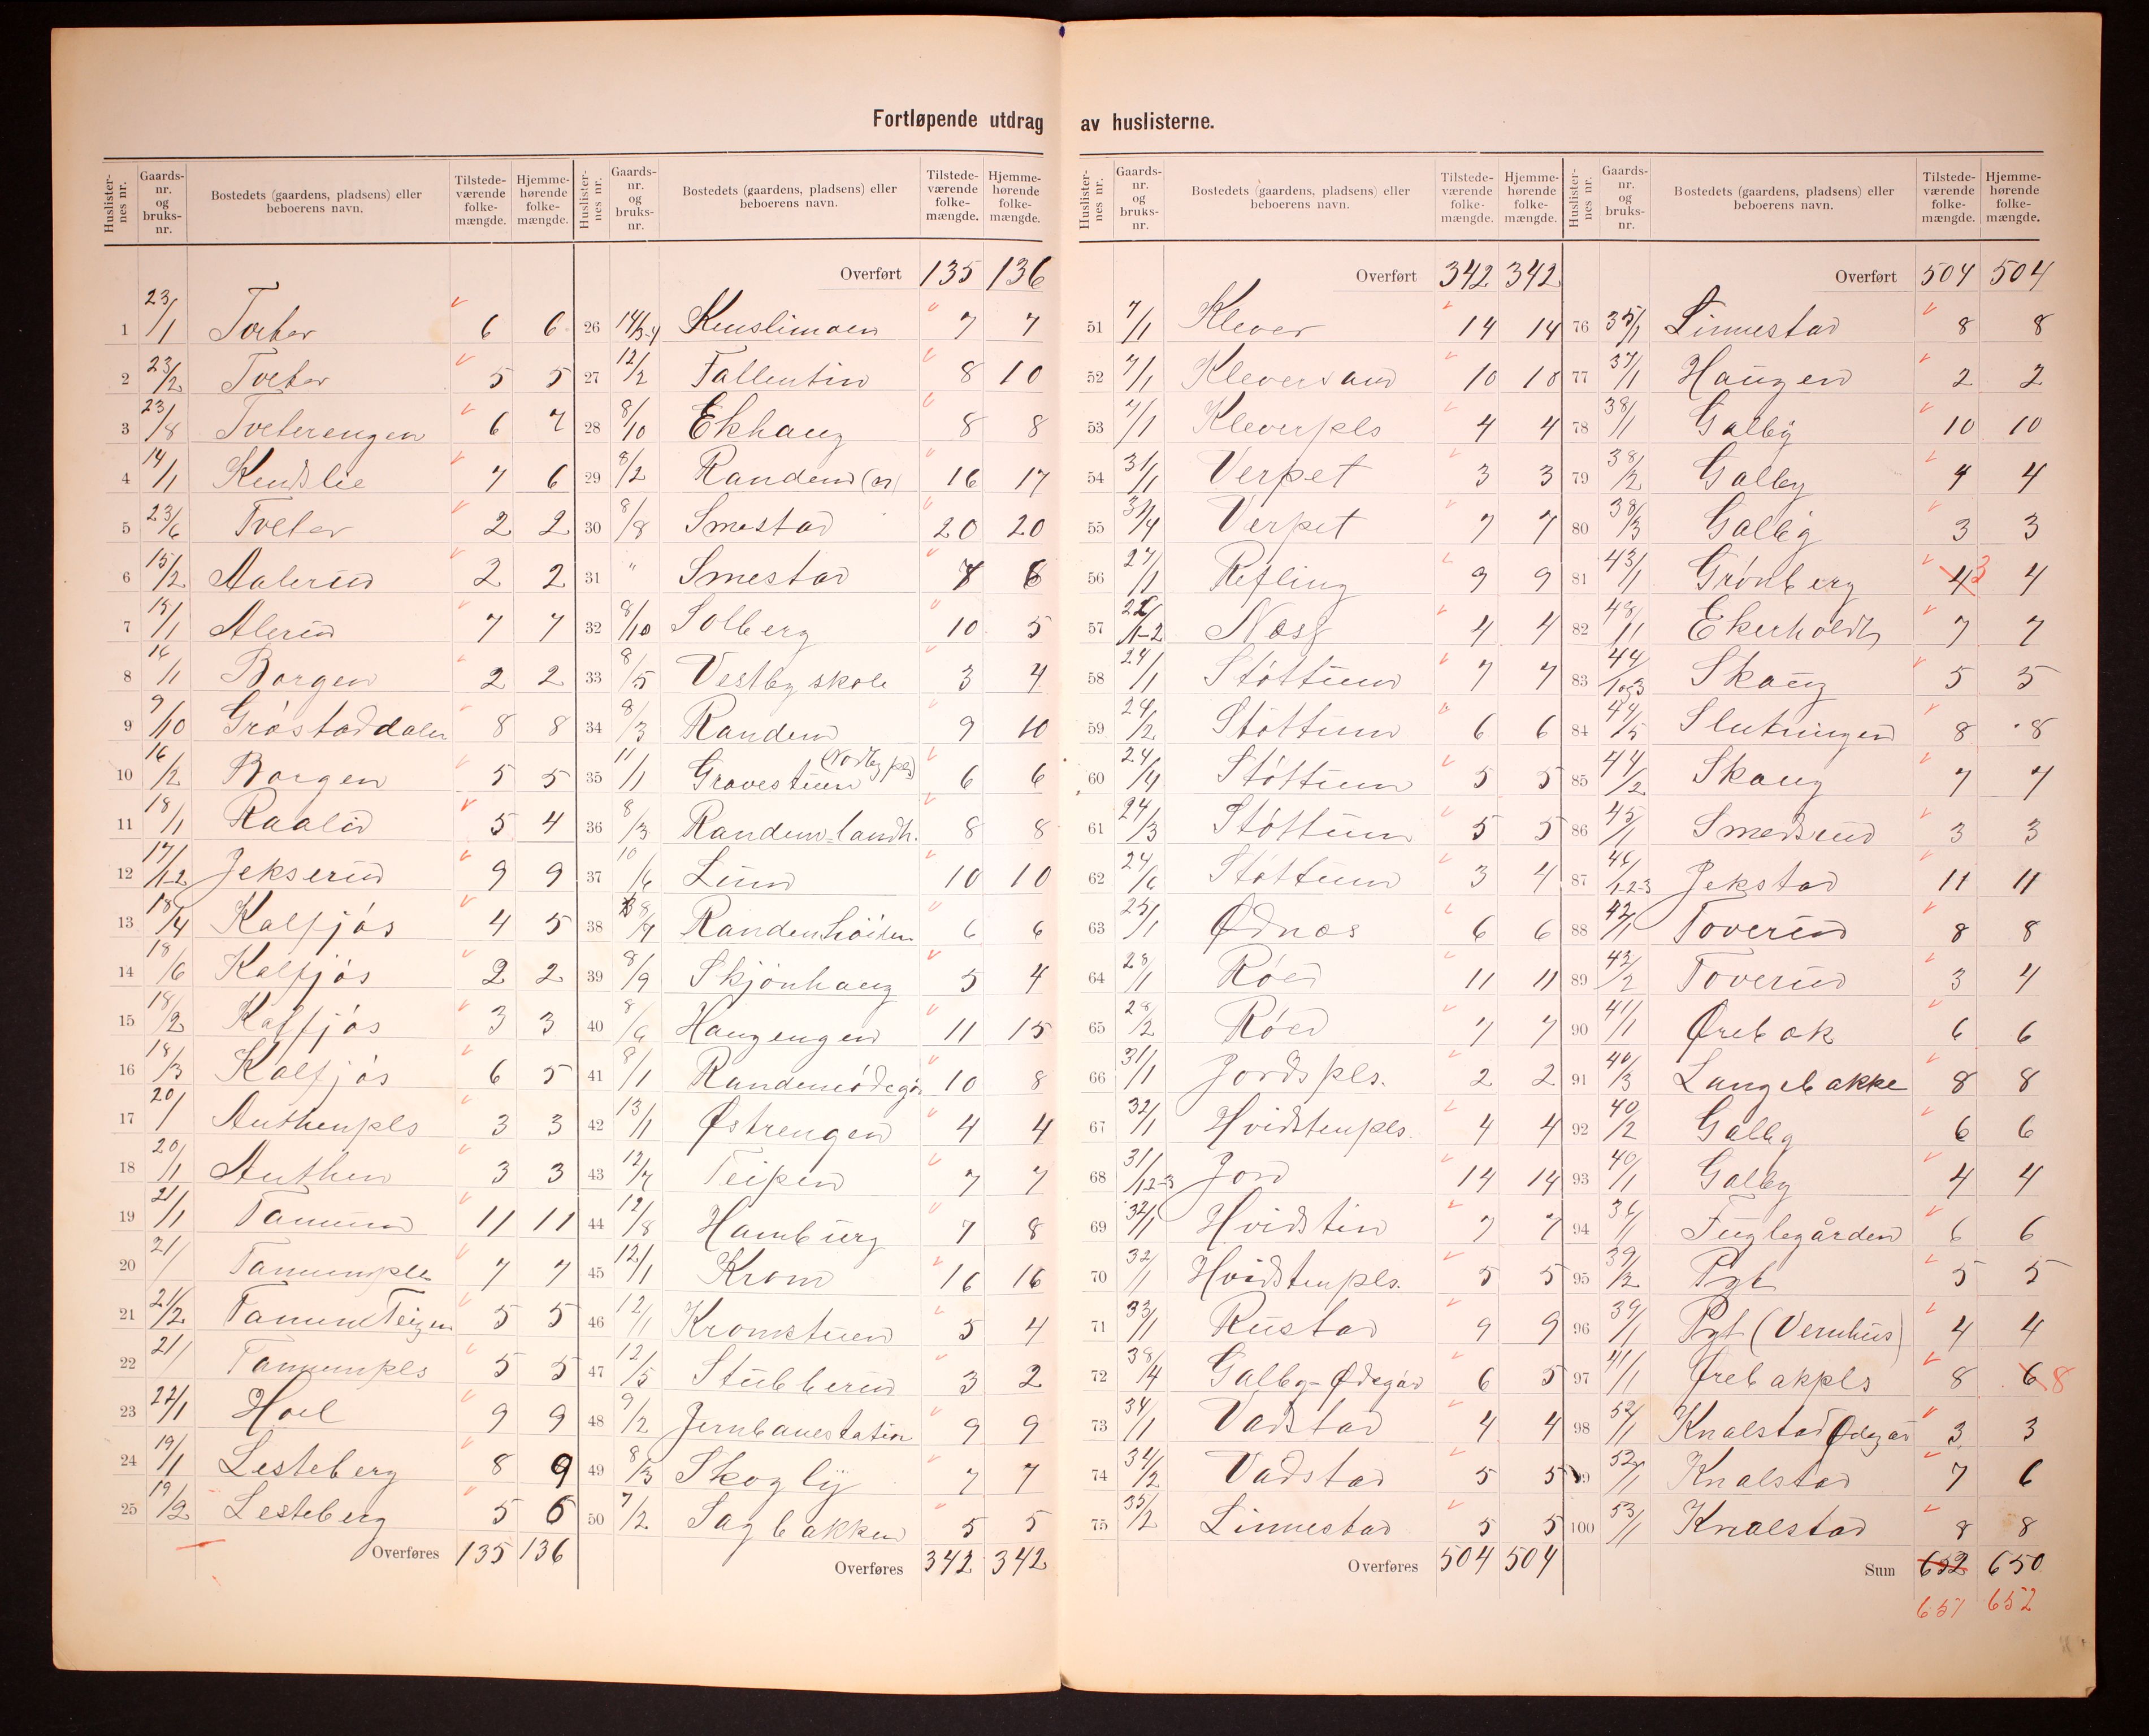 Fortløpende utdrag av huslisterne.
Huslister-nes nr. Gaards-nr. og bruks-nr. Bostedets (gaardens, pladsens) eller beboerens navn. Tilstede-værende folke-mængde. Hjemme-hørende folke-mængde.
1 23/1 Tveter 6 6
2 23/2 Tveter 5 5
3 23/8 Tveterengen 6 7
4 14/1 Kendslie 7 6
5 23/6 Tveter 2 2
6 15/2 Aalerud 2 2
7 15/1 Alerud 7 7
8 16/1 Borgen 2 2
9 9/10 Grøstaddalen 8 8
10 16/2 Borgen 5 5
11 18/1 Raalid 5 4
12 17/1-2 Jekserud 9 9
13 18/4 Kalfjøs 4 5
14 18/6 Kalfjøs 2 2
15 18/2 Kalfjøs 3 3
16 18/3 Kalfjøs 6 5
17 20/1 Authenpls 3 3
18 20/1 Authen 3 3
19 21/1 Tamum 11 11
20 21/ Tamumpls 7 7
21 21/2 Tamum Teigen 5 5
22 21/ Tamumpls 5 5
23 22/1 Hoel 9 9
24 19/1 Lesteberg 8 9
25 19/2 Lesteberg 5 6
Overføres 135 136
Huslister-nes nr. Gaards-nr. og bruks-nr. Bostedets (gaardens, pladsens) eller beboerens navn. Tilstede-værende folke-mængde. Hjemme-hørende folke-mængde.
Overført 135 136
26 14/3-4 Kenslimoen 7 7
27 12/2 Fallentin 8 10
28 8/10 Ekhaug 8 8
29 8/2 Randem (n) 16 17
30 8/8 Smestad 20 20
31 " Smestad 7 6
32 8/10 Solberg 10 5
33 8/5 Vestby skole 3 4
34 8/3 Randem 9 10
35 11/1 Gravestuen (Nordby pls) 6 6
36 8/3 Randem landh. 8 8
37 10/6 Lund 10 10
38 8/7 Randemhöiden 6 6
39 8/9 Skjønhaug 5 4
40 8/6 Haugengen 11 15
41 8/1 Randemødegår 10 8
42 13/1 Østrengen 4 4
43 12/7 Teipen 7 7
44 12/8 Hamburg 7 8
45 12/1 Krom 16 16
46 12/1 Kromstuen 5 4
47 12/5 Stubberud 3 2
48 9/2 Jernbanestation 9 9
49 8/3 Skogly 7 7
50 7/2 Sagbakken 5 5
Overføres 342 342
Huslister-nes nr. Gaards-nr. og bruks-nr. Bostedets (gaardens, pladsens) eller beboerens navn. Tilstede-værende folke-mængde. Hjemme-hørende folke-mængde.
Overført 342 342
51 7/1 Klever 14 14
52 7/1 Kleversand 10 10
53 7/1 Kleverpls 4 4
54 31/1 Verpet 3 3
55 31/4 Verpet 7 7
56 27/1 Refling 9 9
57 26/1-2 Ness 4 4
58 24/1 Støttum 7 7
59 24/2 Støttum 6 6
60 24/4 Støttum 5 5
61 24/3 Støttum 5 5
62 24/6 Støttum 3 4
63 25/1 Ødnes 6 6
64 28/1 Røed 11 11
65 28/2 Røed 7 7
66 31/1 Jordspls. 2 2
67 32/1 Hvidstenpls. 4 4
68 31/1 2-3 Jord 14 14
69 32/1 Hvidstin 7 7
70 32/1 Hvidstenpls. 5 5
71 33/1 Rustad 9 9
72 38/4 Galby-Ødegår 6 5
73 34/1 Vadstad 4 4
74 34/2 Vadstad 5 5
75 35/2 Linnestad 5 5
Overføres 504 504
Huslister-nes nr. Gaards-nr. og bruks-nr. Bostedets (gaardens, pladsens) eller beboerens navn. Tilstede-værende folke-mængde. Hjemme-hørende folke-mængde.
Overført 504 504
76 35/1 Linnestad 8 8
77 37/1 Haugen 2 2
78 38/1 Galby 10 10
79 38/2 Galby 4 4
80 38/3 Galby 3 3
81 43/1 Grønberg 4 3 4
82 48/11 Ekerholdt 7 7
83 44/1 og 3 Skaug 5 5
84 44/5 Slutningen 8 8
85 44/2 Skaug 7 7
86 45/1 Smedsrud 3 3
87 46/1-2-3 Jekstad 11 11
88 42/1 Toverud 8 8
89 42/2 Toverud 3 4
90 41/1 Ørebæk 6 6
91 40/3 Langebakke 8 8
92 40/2 Galby 6 6
93 40/1 Galby 4 4
94 36/1 Fuglegården 6 6
95 39/2 Pgt 5 5
96 39/1 Pgt (Vernhus) 4 4
97 41/1 Ørebækpls 8 6 8
98 52/1 Knalstad Ødegår 3 3
99 52/1 Knalstad 7 6
100 53/1 Knalstad 8 8
Sum 652 650
651 652